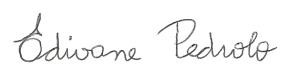 Edivane Pedrolo